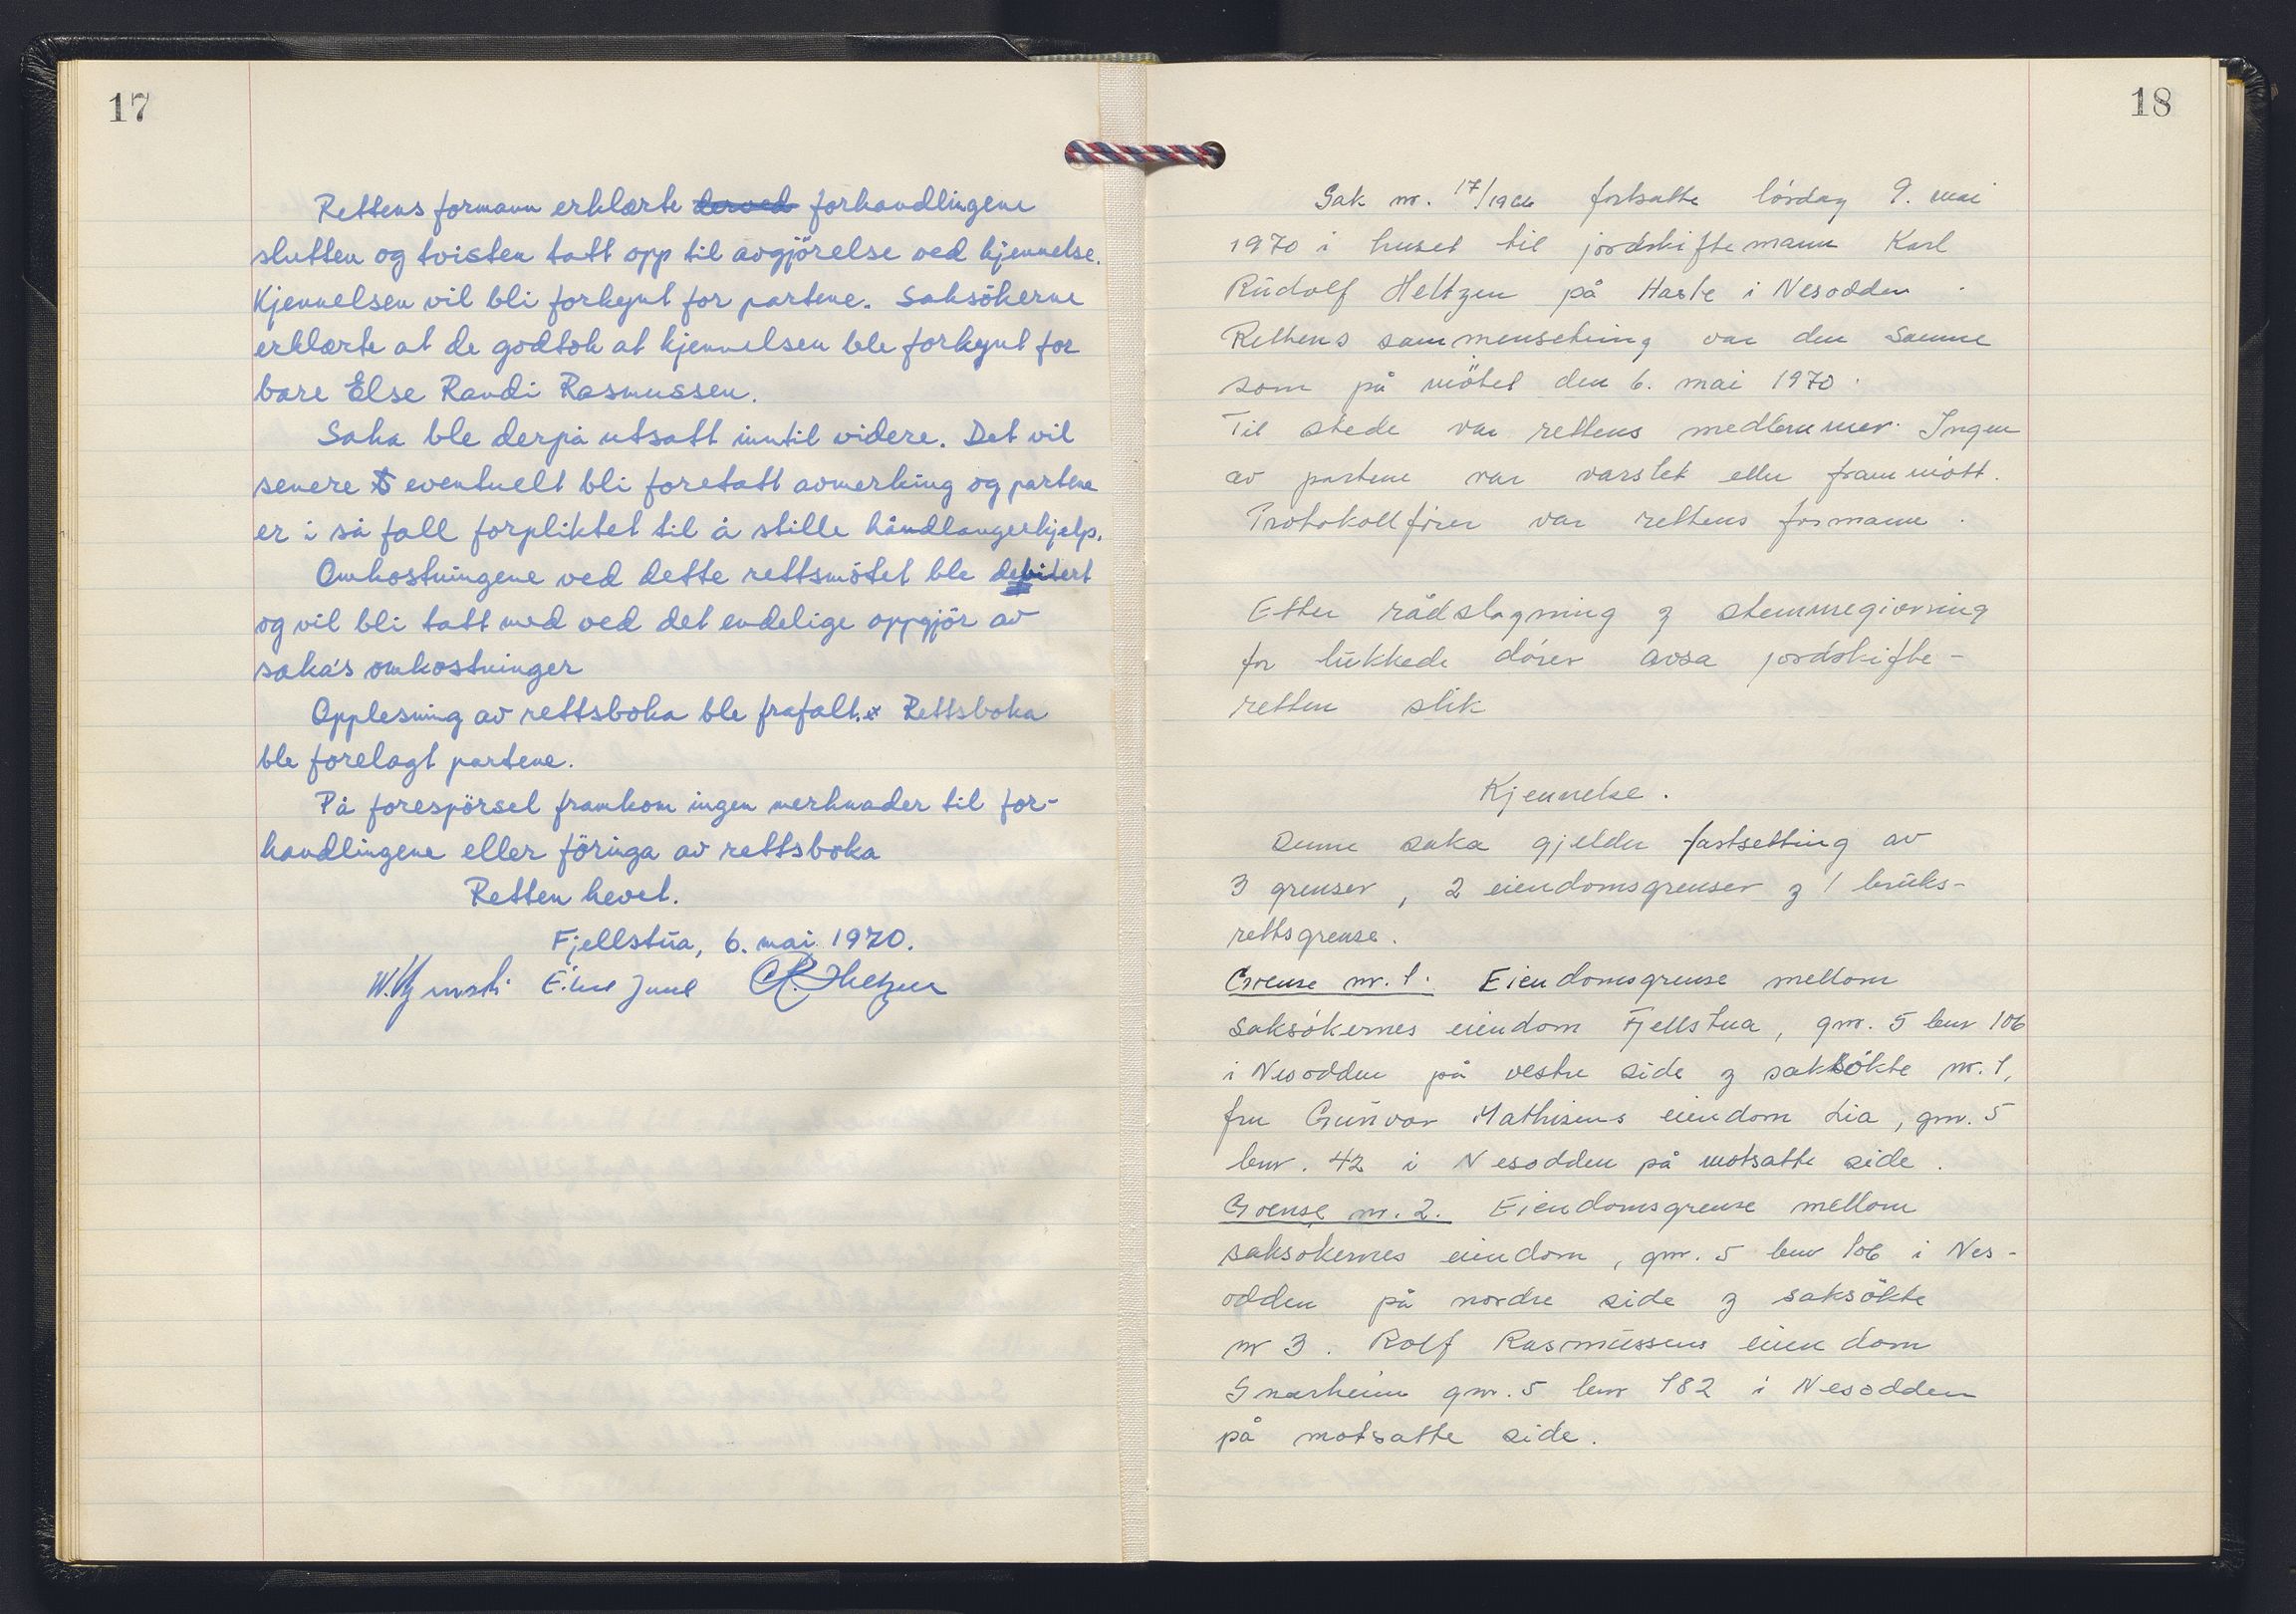 17
Rettens formann erklærte derved forhandlingene
slutten og tvisten tatt opp til avgjörelse ved kjennelse.
Kjennelsen vil bli forkynt for partene. Saksökerne
erklærte at de godtok at kjennelsen ble forkynt for
bare Else Randi Rasmussen.
Saka ble derpå utsatt inntil videre. Det vil
senere eventuelt bli foretatt avmerking og partene
er i så fall forpliktet til å stille håndlangerhjelp.
Omkostningene ved dette rettsmötet ble debitert
og vil bli tatt med ved det endelige oppgjör av
saka's omkostninger
Opplesning av rettsboka ble frafalt. Rettsboka
ble forelagt partene.
På forespörsel framkom ingen merknader til for-
handlingene eller föringa av rettsboka
Retten hevet.
Fjellstua, 6. mai 1970.
Einar Juul
18
Sak nr. 17/1966 fortsatte lördag 9. mai
1970 i huset til jordskiftemann Karl
Rudolf Heltzen på Hasle i Nesodden.
Rettens sammensetning var den samme
som på mötet den 6. mai 1970.
Til stede var rettens medlemmer. Ingen
av partene var varslet eller frammött.
Protokollförer var rettens formann.
Etter rådslagning og stemmegivning
for lukkede dörer avsa jordskifte-
retten slik
Kjennelse.
Denne saka gjelder fastsetting av
3 grenser, 2 eiendomsgrenser og 1 bruks-
rettsgrense.
Grense nr. 1. Eiendomsgrense mellom
saksökernes eiendom Fjellstua, gnr. 5 bnr 106
i Nesodden på vestre side og saksökte nr. 1,
fru Gunvor Mathisens eiendom Lia, gnr. 5
bnr. 42 i Nesodden på motsatte side.
Grense nr. 2. Eiendomsgrense mellom
saksökernes eiendom, gnr. 5 bnr 106 i Nes-
odden på nordre side og saksökte
nr 3. Rolf Rasmussens eiendom
Snarheim gnr. 5 bnr 182 i Nesodden
på motsatte side.